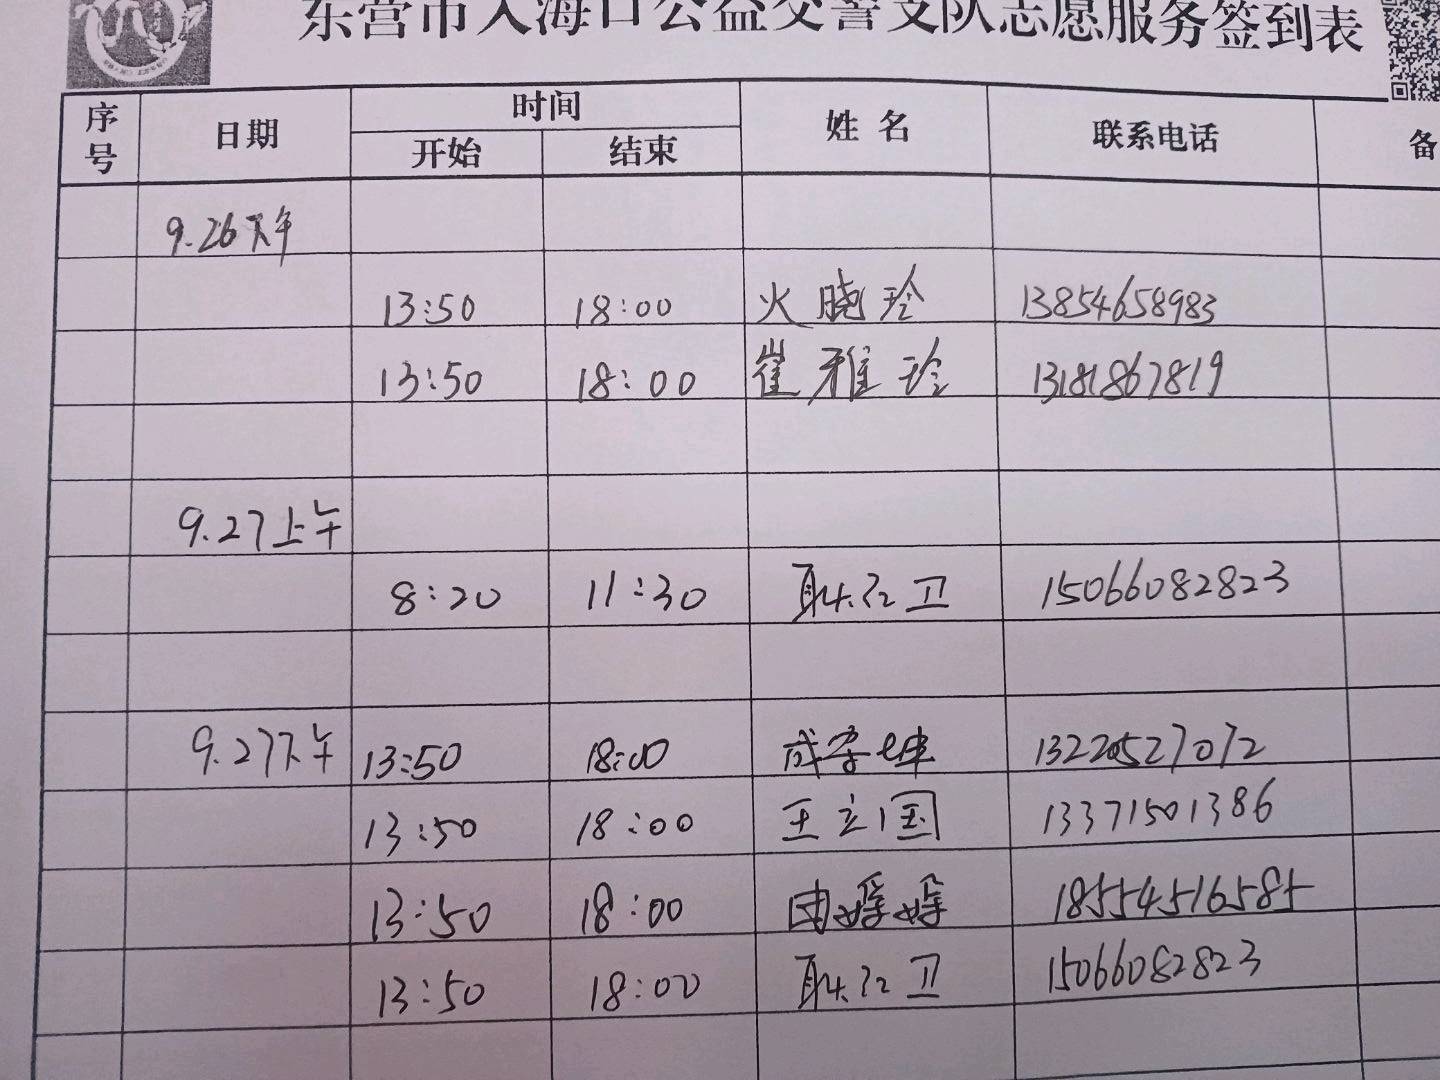 东营市入海口公益交警支队志愿服务签到表
序号 日期 时间 姓名 联系电话 备
开始 结束
9.26下午
13:50 18:00 火晓玲 13854658983
13:50 18:00 崔雅玲 13181867819
9.27上午
8:20 11:30 耿红卫 15066082823
9.27下午 13:50 18:00 13220527072
13:50 18:00 王立国 13371501386
13:50 18:00 18554516585
13:50 18:00 耿红卫 15066082823